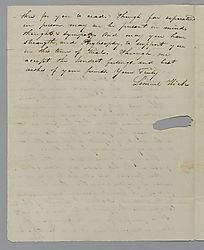 this for you to read. Though far separated
in person may we be present in minds
thoughts & sympathy. And may you have
strength, and Philosophy, to support you
in this time of trials. Through me
accept the kindest feelings, and best
wishes of your friend. Yours truly